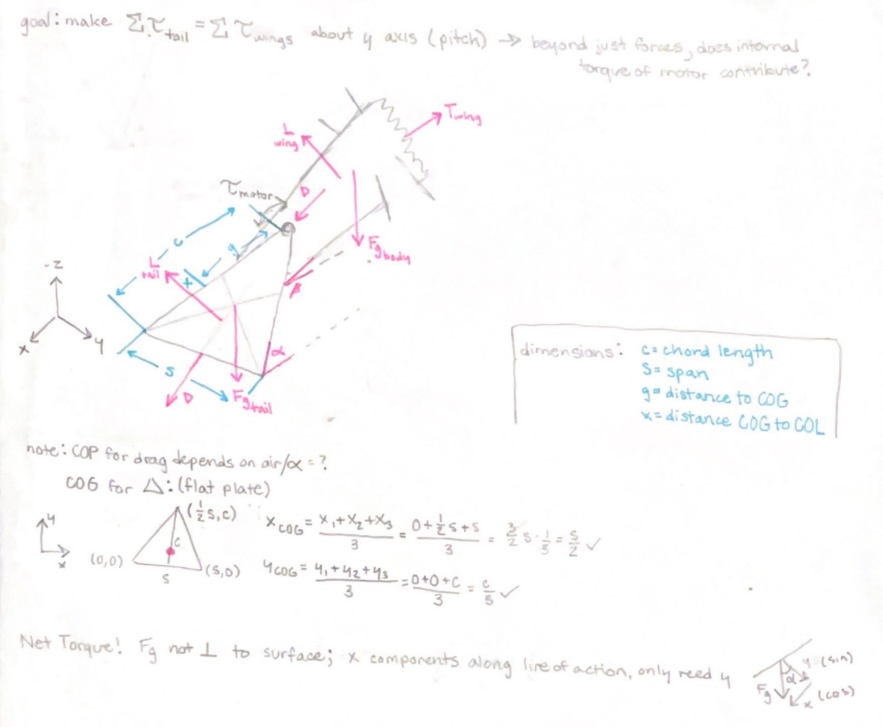 goal: make Σ τ tail = Σ τ wings about y axis (pitch) → beyond just forces, does internal
torque of motor contribute?
T wing
L wing
τ motor
D
c
g
Fg body
L tail
x
-z
β
x
y
s
α
D
Fg tail
dimensions: c= chord length
s= span
g= distance to COG
x= distance COG to COL
note: COP for drag depends on air/α = ?
COG for △: (flat plate)
y
x
(½s, c)
c
(0,0)
(s,0)
s
x COG = x₁+x₂+x₃ / 3 = 0+½s+s / 3 = 3/2 s · 1/3 = s/2 ✓
y COG = y₁+y₂+y₃ / 3 = 0+0+c / 3 = c/3 ✓
Net Torque! Fg not ⊥ to surface; x components along line of action, only need y
y (sin)
α
Fg
x (cos)